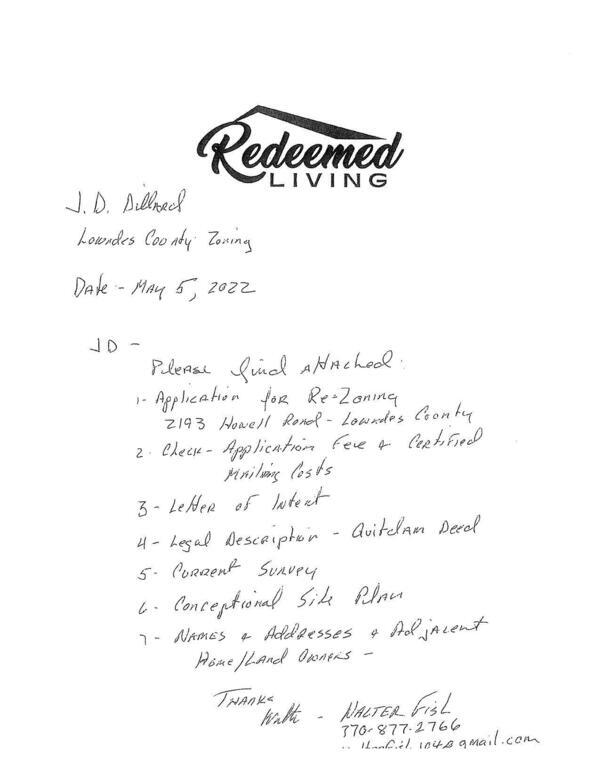 Redeemed
LIVING
J. D. Dillard
Lowndes County Zoning
Date - May 5, 2022
JD -
Please find attached:
1- Application for Re-Zoning
2193 Howell Road - Lowndes County
2. Check - Application Fee & Certified
Mailing Costs
3 - Letter of Intent
4 - Legal Description - Quitclam Deed
5 - Current Survey
6 - Conceptional Site Plan
7 - Names & Addresses & Adjacent
Home/Land Owners -
Thanks
Walter - Walter Fish
770-877-2766
@gmail.com